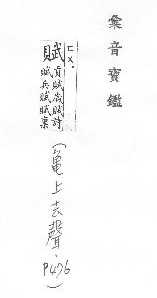 彙音寶鑑
ㄈㄨˋ
賦
貢賦歲賦詩
賦兵賦賦稟
(龜上去聲、
P476)